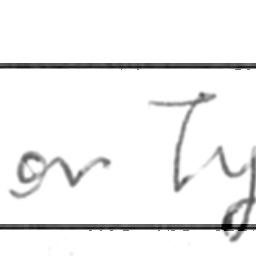 or Ty